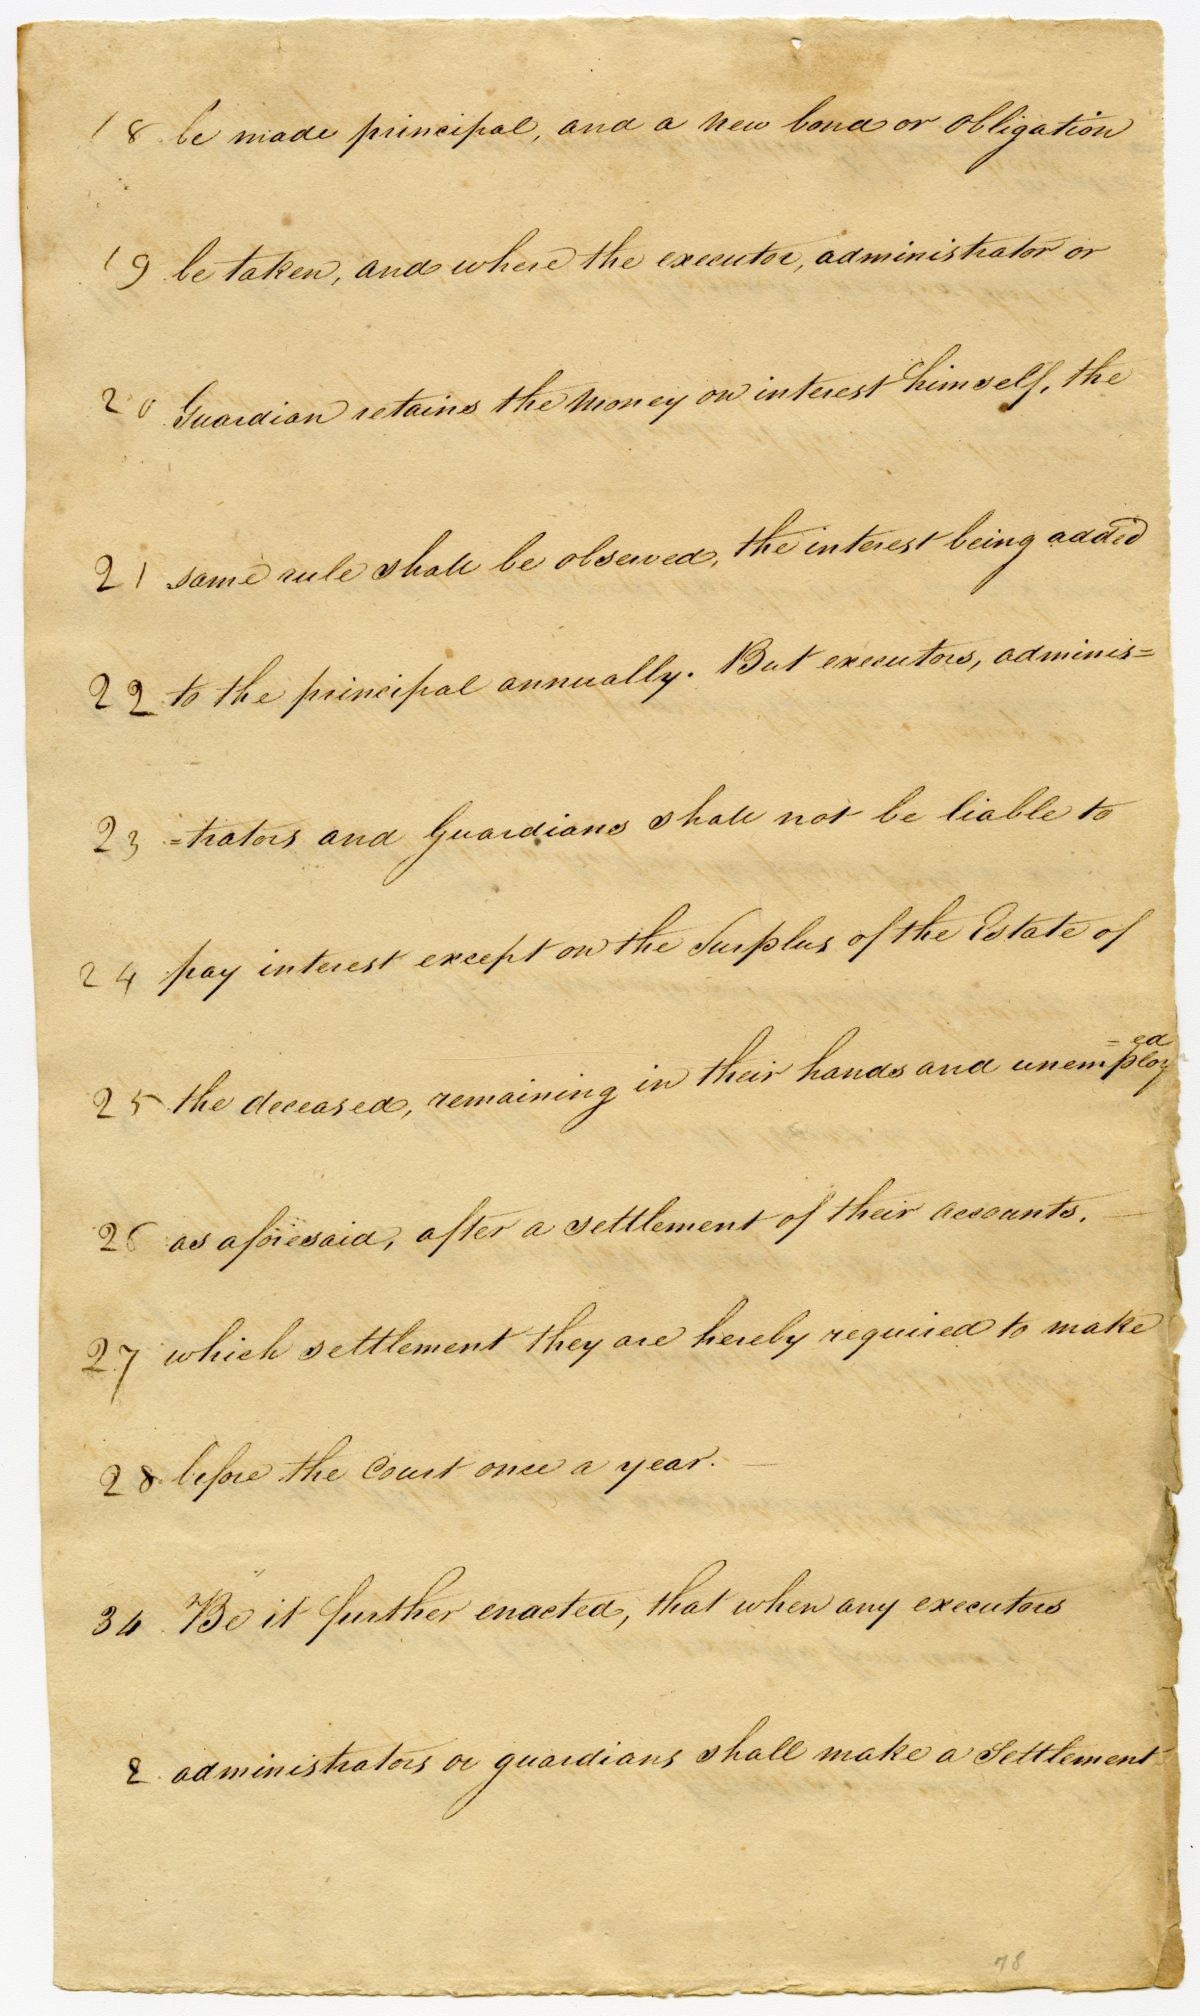 18 be made principal, and a new bond or obligation
19 be taken, and where the executor, administrator or
20 Guardian retains the money on interest himself, the
21 same rule shall be observed, the interest being added
22 to the principal annually. But executors, adminis=
23 =trators and Guardians shall not be liable to
24 pay interest except on the Surplus of the Estate of
25 the deceased, remaining in their hands and unemploy=ed
26 as aforesaid, after a settlement of their accounts,
27 which settlement they are hereby required to make
28 before the Court once a year.
34 Be it further enacted, that when any executors
2 administrators or guardians shall make a Settlement
78